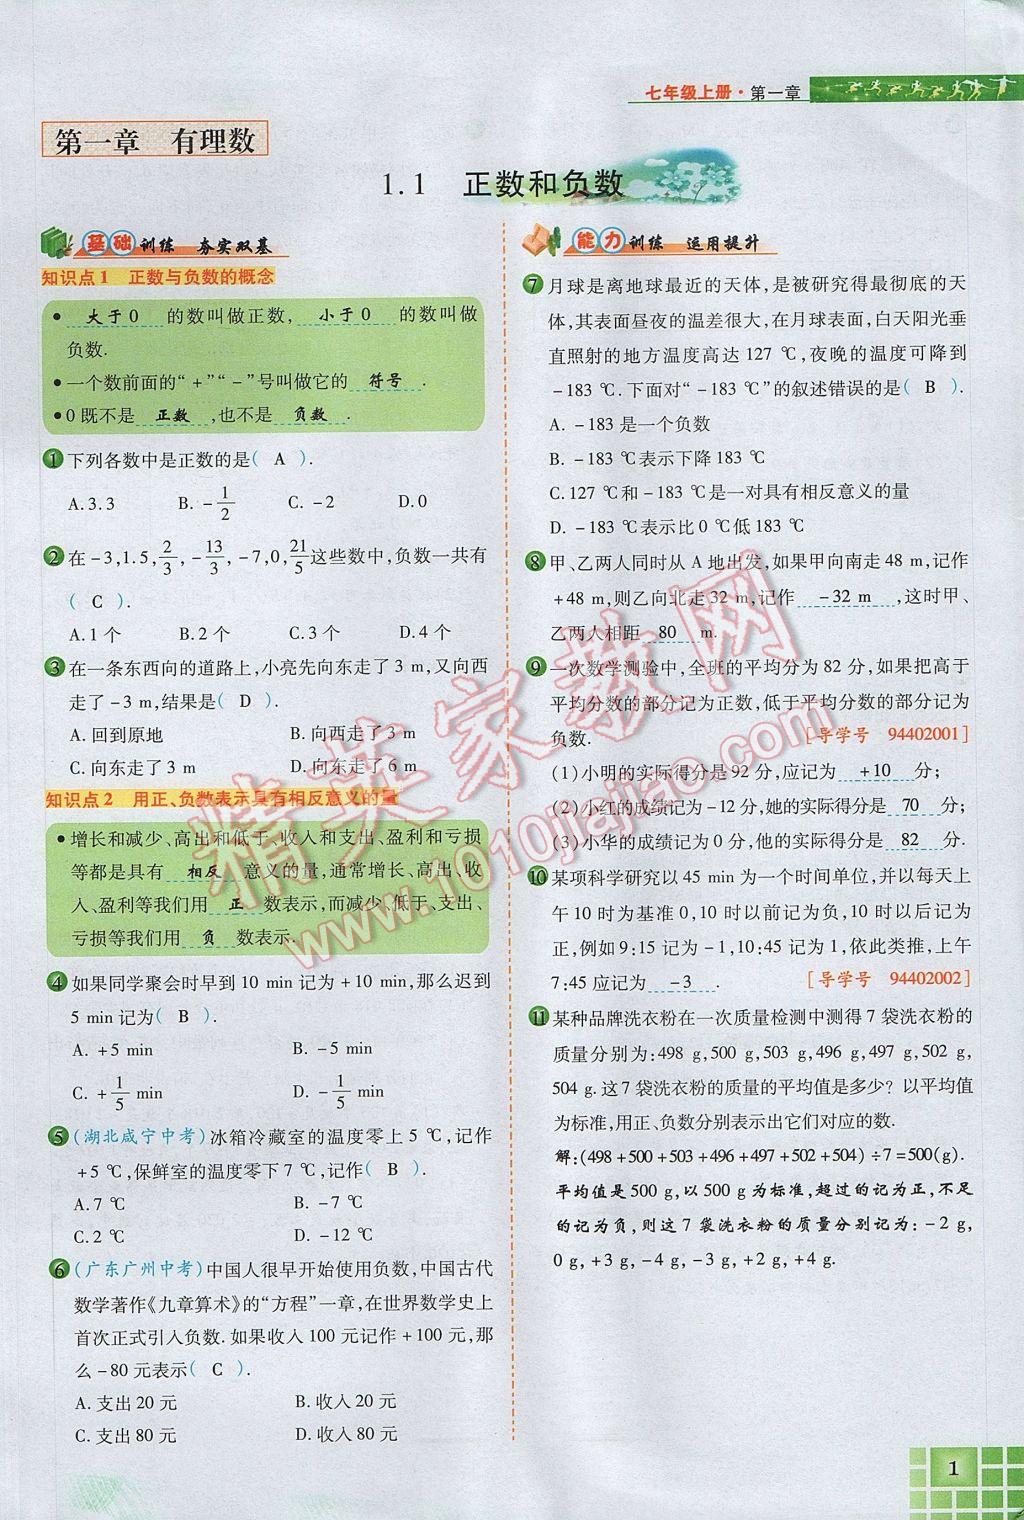 七年级上册·第一章
第一章 有理数
1.1 正数和负数
基础训练 夯实双基
知识点1 正数与负数的概念
● 大于0 的数叫做正数, 小于0 的数叫做
负数.
●一个数前面的“+”“-”号叫做它的 符号 .
●0既不是 正数 ,也不是 负数 .
1 下列各数中是正数的是( A ).
A.3.3 B. -1/2 C. -2 D.0
2 在-3,1.5,2/3,-13/3,-7,0,21/5这些数中,负数一共有
( C ).
A.1个 B.2个 C.3个 D.4个
3 在一条东西向的道路上,小亮先向东走了3 m,又向西
走了-3 m,结果是( D ).
A.回到原地 B.向西走了3 m
C.向东走了3 m D.向东走了6 m
知识点2 用正、负数表示具有相反意义的量
●增长和减少、高出和低于、收入和支出、盈利和亏损
等都是具有 相反 意义的量,通常增长、高出、收
入、盈利等我们用 正 数表示,而减少、低于、支出、
亏损等我们用 负 数表示.
4 如果同学聚会时早到10 min记为+10 min,那么迟到
5 min记为( B ).
A. +5 min B. -5 min
C. +1/5 min D. -1/5 min
5 (湖北咸宁中考)冰箱冷藏室的温度零上5 ℃,记作
+5 ℃,保鲜室的温度零下7 ℃,记作( B ).
A.7 ℃ B. -7 ℃
C.2 ℃ D. -12 ℃
6 (广东广州中考)中国人很早开始使用负数,中国古代
数学著作《九章算术》的“方程”一章,在世界数学史上
首次正式引入负数.如果收入100元记作+100元,那
么-80元表示( C ).
A.支出20元 B.收入20元
C.支出80元 D.收入80元
能力训练 运用提升
7 月球是离地球最近的天体,是被研究得最彻底的天
体,其表面昼夜的温差很大,在月球表面,白天阳光垂
直照射的地方温度高达127 ℃,夜晚的温度可降到
-183 ℃.下面对“-183 ℃”的叙述错误的是( B ).
A. -183是一个负数
B. -183 ℃表示下降183 ℃
C.127 ℃和-183 ℃是一对具有相反意义的量
D. -183 ℃表示比0 ℃低183 ℃
8 甲、乙两人同时从A地出发,如果甲向南走48 m,记作
+48 m,则乙向北走32 m,记作 -32 m ,这时甲、
乙两人相距 80 m.
9 一次数学测验中,全班的平均分为82分,如果把高于
平均分数的部分记为正数,低于平均分数的部分记为
负数. [导学号 94402001]
(1)小明的实际得分是92分,应记为 +10 分;
(2)小红的成绩记为-12分,她的实际得分是 70 分;
(3)小华的成绩记为0分,他的实际得分是 82 分.
10 某项科学研究以45 min为一个时间单位,并以每天上
午10时为基准0,10时以前记为负,10时以后记为
正,例如9:15记为-1,10:45记为1,依此类推,上午
7:45应记为 -3 . [导学号 94402002]
11 某种品牌洗衣粉在一次质量检测中测得7袋洗衣粉的
质量分别为:498 g,500 g,503 g,496 g,497 g,502 g,
504 g.这7袋洗衣粉的质量的平均值是多少?以平均值
为标准,用正、负数分别表示出它们对应的数.
解:(498+500+503+496+497+502+504)÷7=500(g).
平均值是500 g,以500 g为标准,超过的记为正,不足
的记为负,则这7袋洗衣粉的质量分别记为:-2 g,
0 g,+3 g,-4 g,-3 g,+2 g,+4 g.
精英家教网
www.1010jiajiao.com
1